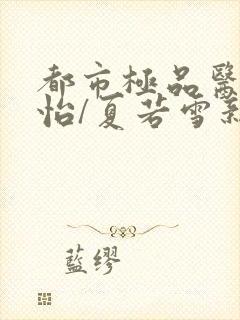 都市極品醫
怡/夏若雪
藍繆